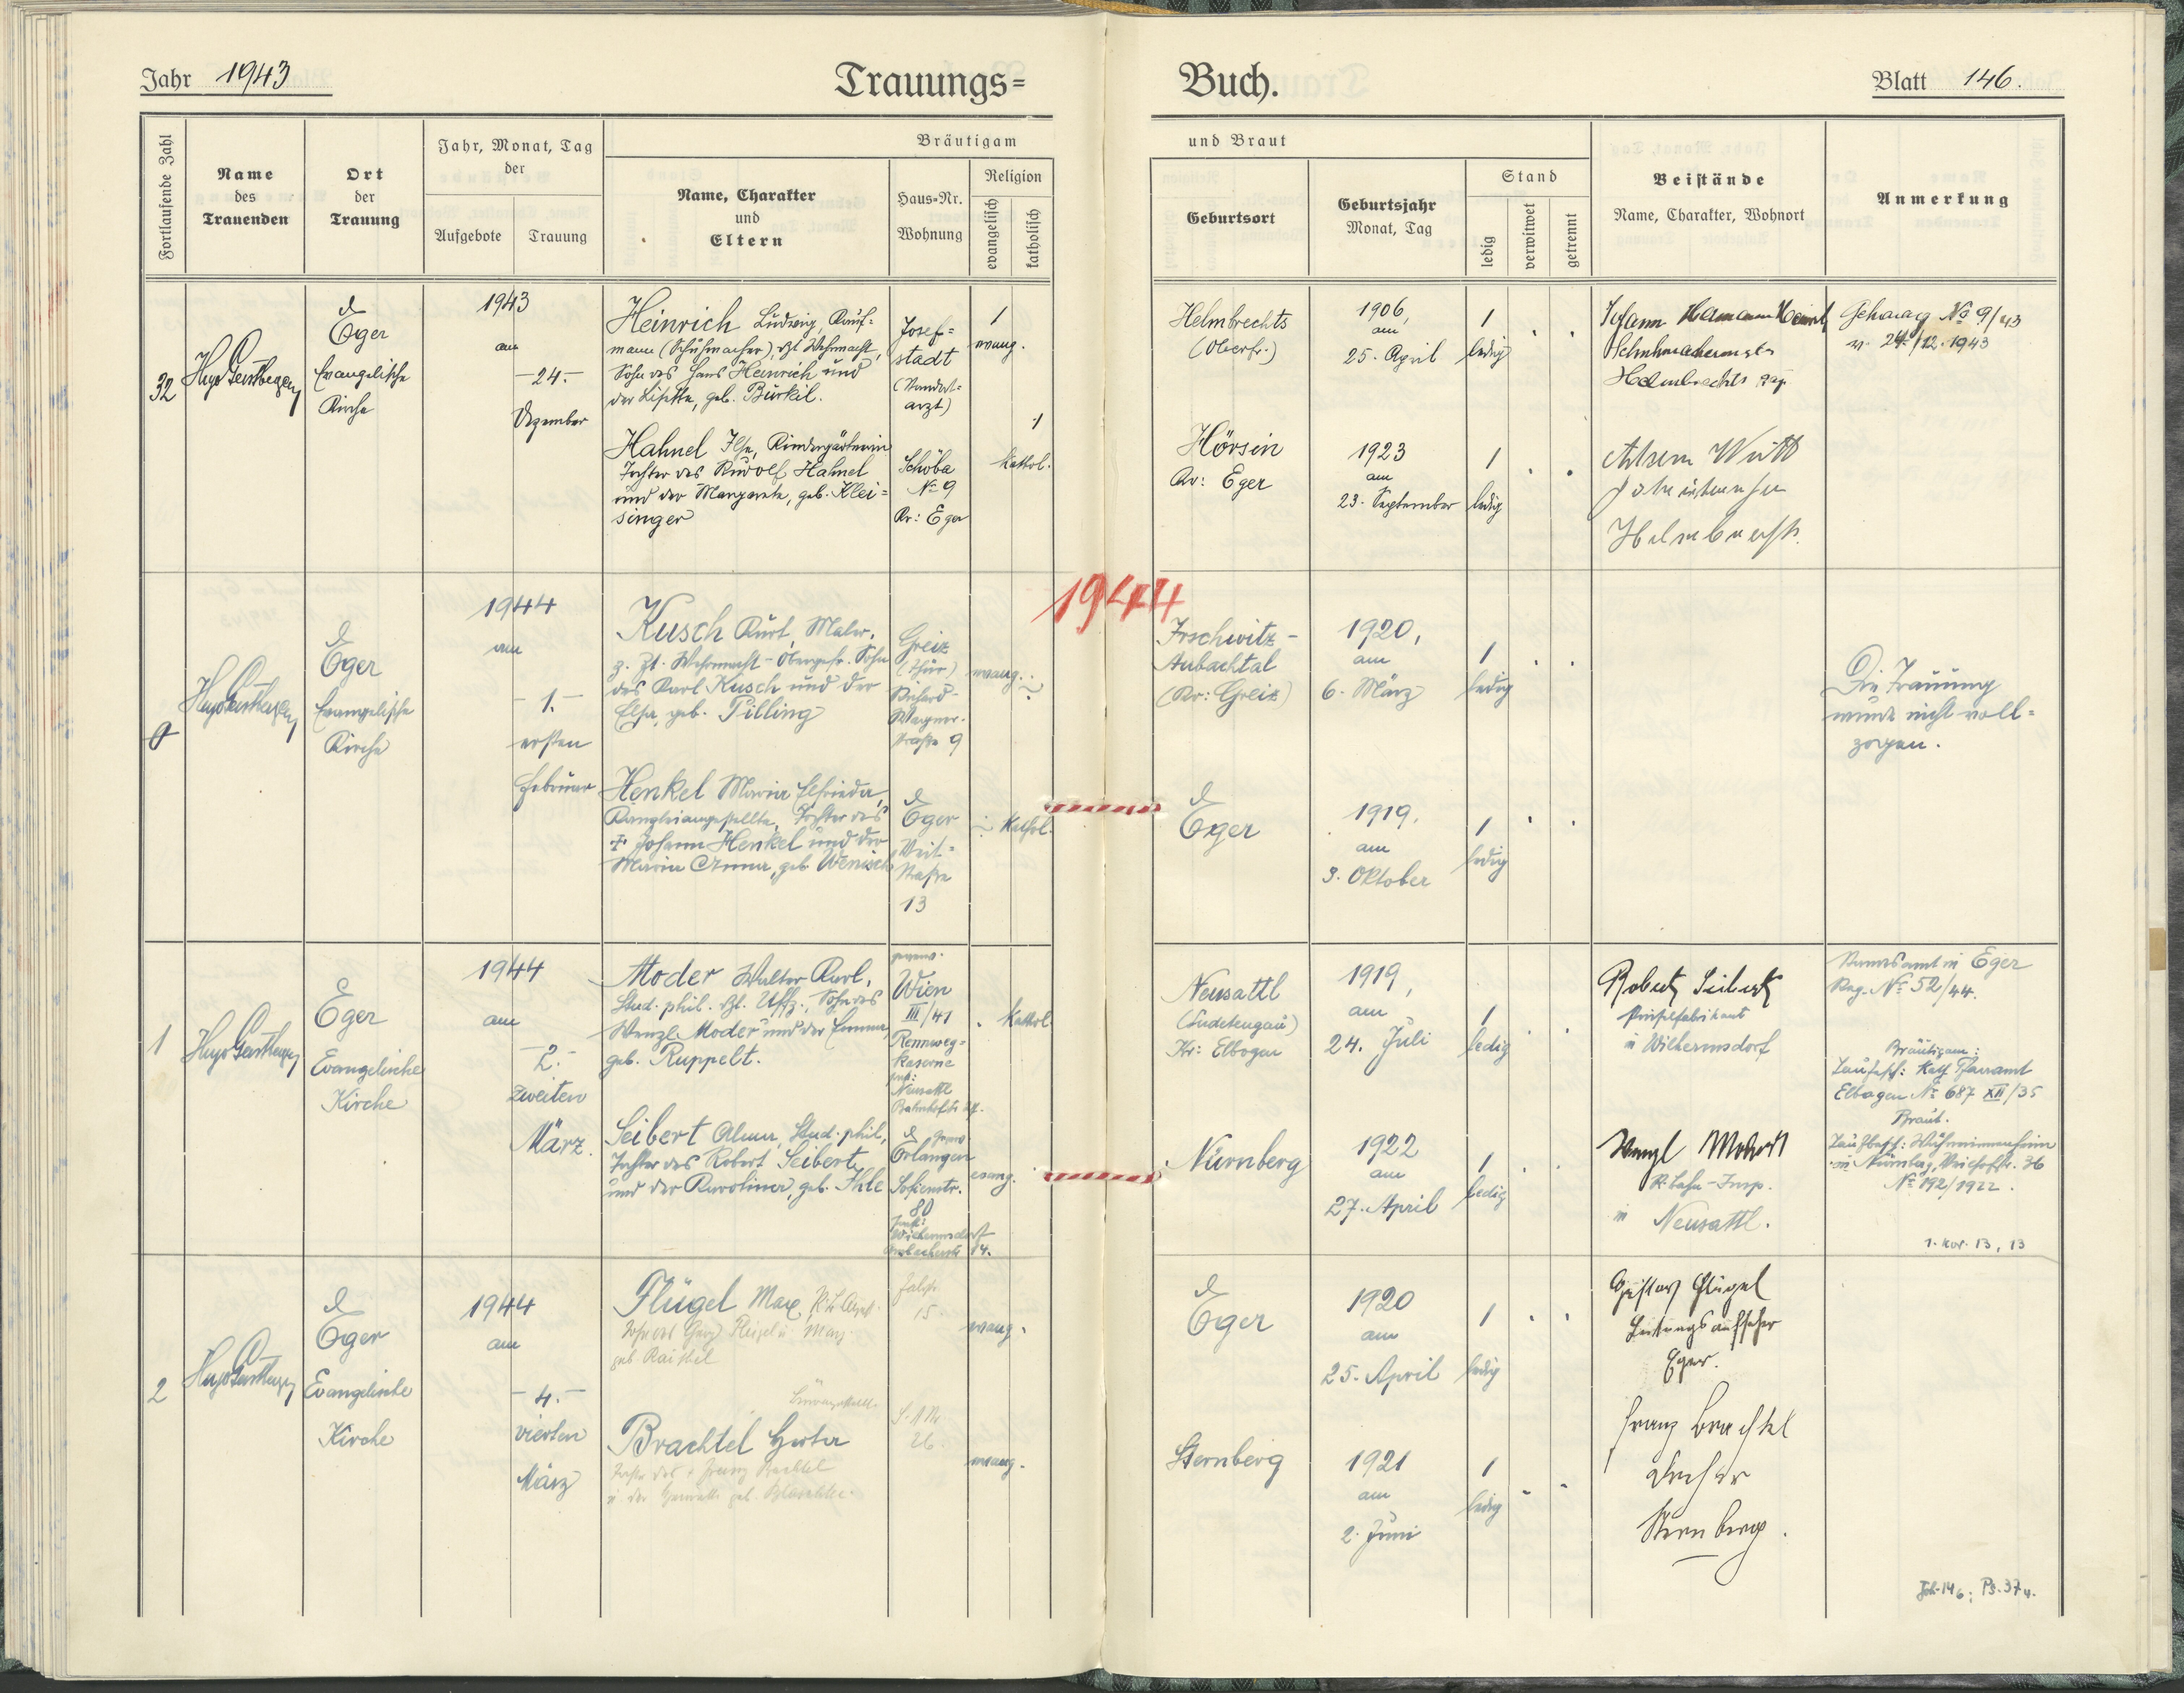 Jahr 1943
Trauungs=
Buch.
Blatt 146.
Fortlaufende Zahl
Name
des
Trauenden
Ort
der
Trauung
Jahr, Monat, Tag
der
Aufgebote
Trauung
Bräutigam
Name, Charakter
und
Eltern
Haus=Nr.
Wohnung
Religion
evangelisch
katholisch
und Braut
Geburtsort
Geburtsjahr
Monat, Tag
Stand
ledig
verwitwet
getrennt
Beistände
Name, Charakter, Wohnort
Anmerkung
32
Eger
Evangelische
Kirche
1943
am
-24.-
Dezember
Heinrich Ludwig, Kauf=
mann (Schuhmacher), zt. Wehrmacht,
Sohn des Hans Heinrich und
der Lisette, geb. Bürkil.
Josef=
stadt
evang.
Hahnel Ilse, Kindergärtnerin
Tochter des Rudolf Hahnel
und der Margarete, geb. Klei=
singer
Schöba
No 9
Kr: Eger
Kathol.
Helmbrechts
(Oberfr.)
1906,
am
25. April
1
ledig
Johann
Schuhmachermstr
Helmbrechts
No 9/43
v. 24./12. 1943
Hörsin
Kr: Eger
1923
am
23. September
1
ledig
1944
0
Eger
Evangelische
Kirche
1944
am
-1.-
ersten
Februar
Kusch Kurt, Maler,
z. Zt. Wehrmacht-Obergefr. Sohn
des Karl Kusch und der
Elsa, geb. Pilling
Greiz
(Thür)
Richard-
Wagner-
straße 9
evang.
Henkel Maria Elfrieda,
Kanzleiangestellte, Tochter des
+ Johann Henkel und der
Maria Anna, geb. Wenisch
Eger
Straße
13
Kathol.
Irschwitz-
Aubachtal
(Kr: Greiz)
1920,
am
6. März
1
ledig
Die Trauung
wurde nicht voll=
zogen.
Eger
1919.
am
3. Oktober
1
ledig
1
Eger
Evangelische
Kirche
1944
am
-2.-
zweiten
März.
Moder Walter Karl,
Stud. phil. zt. Uffz., Sohn des
Wenzl Moder und der Emma,
geb. Ruppelt.
Wien
III/41
Rennweg=
kaserne
Neusattl
Kathol.
Seibert Alma, Stud. phil,
Tochter des Robert Seibert
und der Karolina, geb. Ihle
Erlangen
Sofienstr.
80
evang.
14.
Neusattl
(Sudetengau)
Kr: Elbogen
1919,
am
24. Juli
1
ledig
Robert Seibert
Pinselfabrikant
in Wilhermsdorf
Standesamt in Eger
Reg. No 52/44.
Bräutigam:
Taufsch: Kath Pfarramt
Elbogen No 687 XII/35
Braut.
Nürnberg
1922
am
27. April
1
ledig
Wenzl
in Neusattl.
No 192/1922.
1. Kor. 13, 13
2
Eger
Evangelische
Kirche
1944
am
-4.-
vierten
März
Flügel Max,
15.
evang.
Brachtel Herta
26.
evang.
Eger
1920
am
25. April
1
ledig
Gustav Flügel
Leitungsaufseher
Eger.
Sternberg
1921
am
2. Juni
1
ledig
Franz Brachtel
Sternberg.
Joh. 14 6; Ps. 37 4.